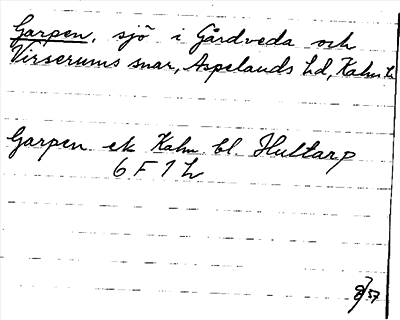 Garpen, sjö i Gårdveda och
Virserums snar, Aspelands hd, Kalm L
Garpen ek Kalm bl. Hultarp
6 F 1 h